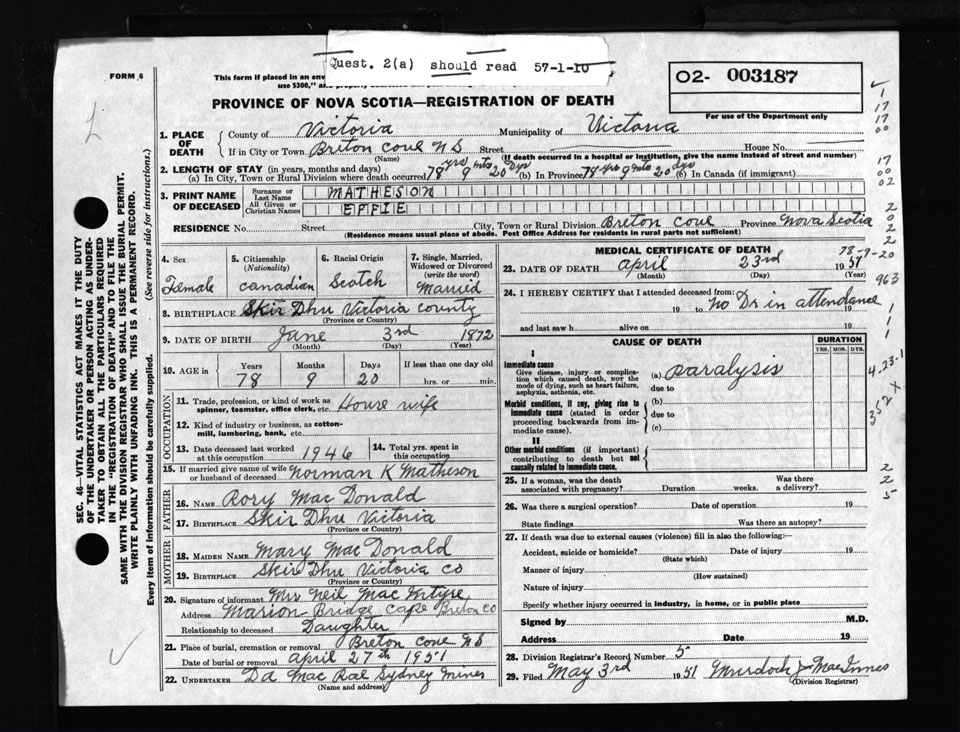 Quest. 2(a) should read 57-1-10
FORM 6
This form if placed in an env
use $300,"
02- 003187
For use of the Department only
PROVINCE OF NOVA SCOTIA—REGISTRATION OF DEATH
1. PLACE OF DEATH
County of Victoria Municipality of Victoria
If in City or Town Breton Cove N S Street House No.
(Name) (If death occurred in a hospital or institution, give the name instead of street and number)
2. LENGTH OF STAY (in years, months and days)
(a) In City, Town or Rural Division where death occurred 78 yrs 9 mts 20 Dys (b) In Province 78 yrs 9 mts 20 dys (c) In Canada (if immigrant)
3. PRINT NAME OF DECEASED
Surname or Last Name MATHESON
All Given or Christian Names EFFIE
RESIDENCE No. Street City, Town or Rural Division Breton Cove Province Nova Scotia
(Residence means usual place of abode. Post Office Address for residents in rural parts not sufficient)
4. Sex Female
5. Citizenship (Nationality) Canadian
6. Racial Origin Scotch
7. Single, Married, Widowed or Divorced (write the word) Married
8. BIRTHPLACE Skir Dhu Victoria County
(Province or Country)
9. DATE OF BIRTH June 3rd 1872
(Month) (Day) (Year)
10. AGE in Years Months Days If less than one day old
78 9 20 hrs. or min.
OCCUPATION
11. Trade, profession, or kind of work as spinner, teamster, office clerk, etc. House wife
12. Kind of industry or business, as cotton-mill, lumbering, bank, etc.
13. Date deceased last worked at this occupation 1946
14. Total yrs. spent in this occupation
15. If married give name of wife or husband of deceased Norman K Matheson
FATHER
16. NAME Rory Mac Donald
17. BIRTHPLACE Skir Dhu Victoria
(Province or Country)
MOTHER
18. MAIDEN NAME Mary Mac Donald
19. BIRTHPLACE Skir Dhu Victoria Co
(Province or Country)
20. Signature of informant Mrs Neil Mac Intyre
Address Marion Bridge Cape Breton Co
Relationship to deceased Daughter
21. Place of burial, cremation or removal Breton Cove N S
Date of burial or removal April 27th 1951
22. UNDERTAKER D A Mac Rae Sydney Mines
(Name and address)
MEDICAL CERTIFICATE OF DEATH 78-9-20
23. DATE OF DEATH April 23rd 1951
(Month) (Day) (Year)
24. I HEREBY CERTIFY that I attended deceased from:
19 to No Dr in attendance
and last saw h alive on 19
CAUSE OF DEATH
DURATION
YRS. MOS. DYS.
I
Immediate cause
Give disease, injury or complication which caused death, NOT the mode of dying, such as heart failure, asphyxia, asthenia, etc.
(a) Paralysis
due to
Morbid conditions, if any, giving rise to immediate cause (stated in order proceeding backwards from immediate cause).
(b)
due to
(c)
II
Other morbid conditions (if important) contributing to death but not causally related to immediate cause.
25. If a woman, was the death associated with pregnancy? Duration weeks. Was there a delivery?
26. Was there a surgical operation? Date of operation 19
State findings Was there an autopsy?
27. If death was due to external causes (violence) fill in also the following:—
Accident, suicide or homicide? Date of injury 19
(State which)
Manner of injury
(How sustained)
Nature of injury
Specify whether injury occurred in industry, in home, or in public place
Signed by M.D.
Address Date 19
28. Division Registrar's Record Number 5
29. Filed May 3rd 1951 Murdock J MacInnes
(Division Registrar)
SEC. 46—VITAL STATISTICS ACT MAKES IT THE DUTY
OF THE UNDERTAKER OR PERSON ACTING AS UNDER-
TAKER TO OBTAIN ALL THE PARTICULARS REQUIRED
IN THE "REGISTRATION OF DEATH" AND TO FILE THE
SAME WITH THE DIVISION REGISTRAR WHO SHALL ISSUE THE BURIAL PERMIT.
WRITE PLAINLY WITH UNFADING INK. THIS IS A PERMANENT RECORD.
Every item of information should be carefully supplied. (See reverse side for instructions.)
1
17
17
00
17
00
02
2
0
2
2
963
1
1
1
4.23-1
2
2
5